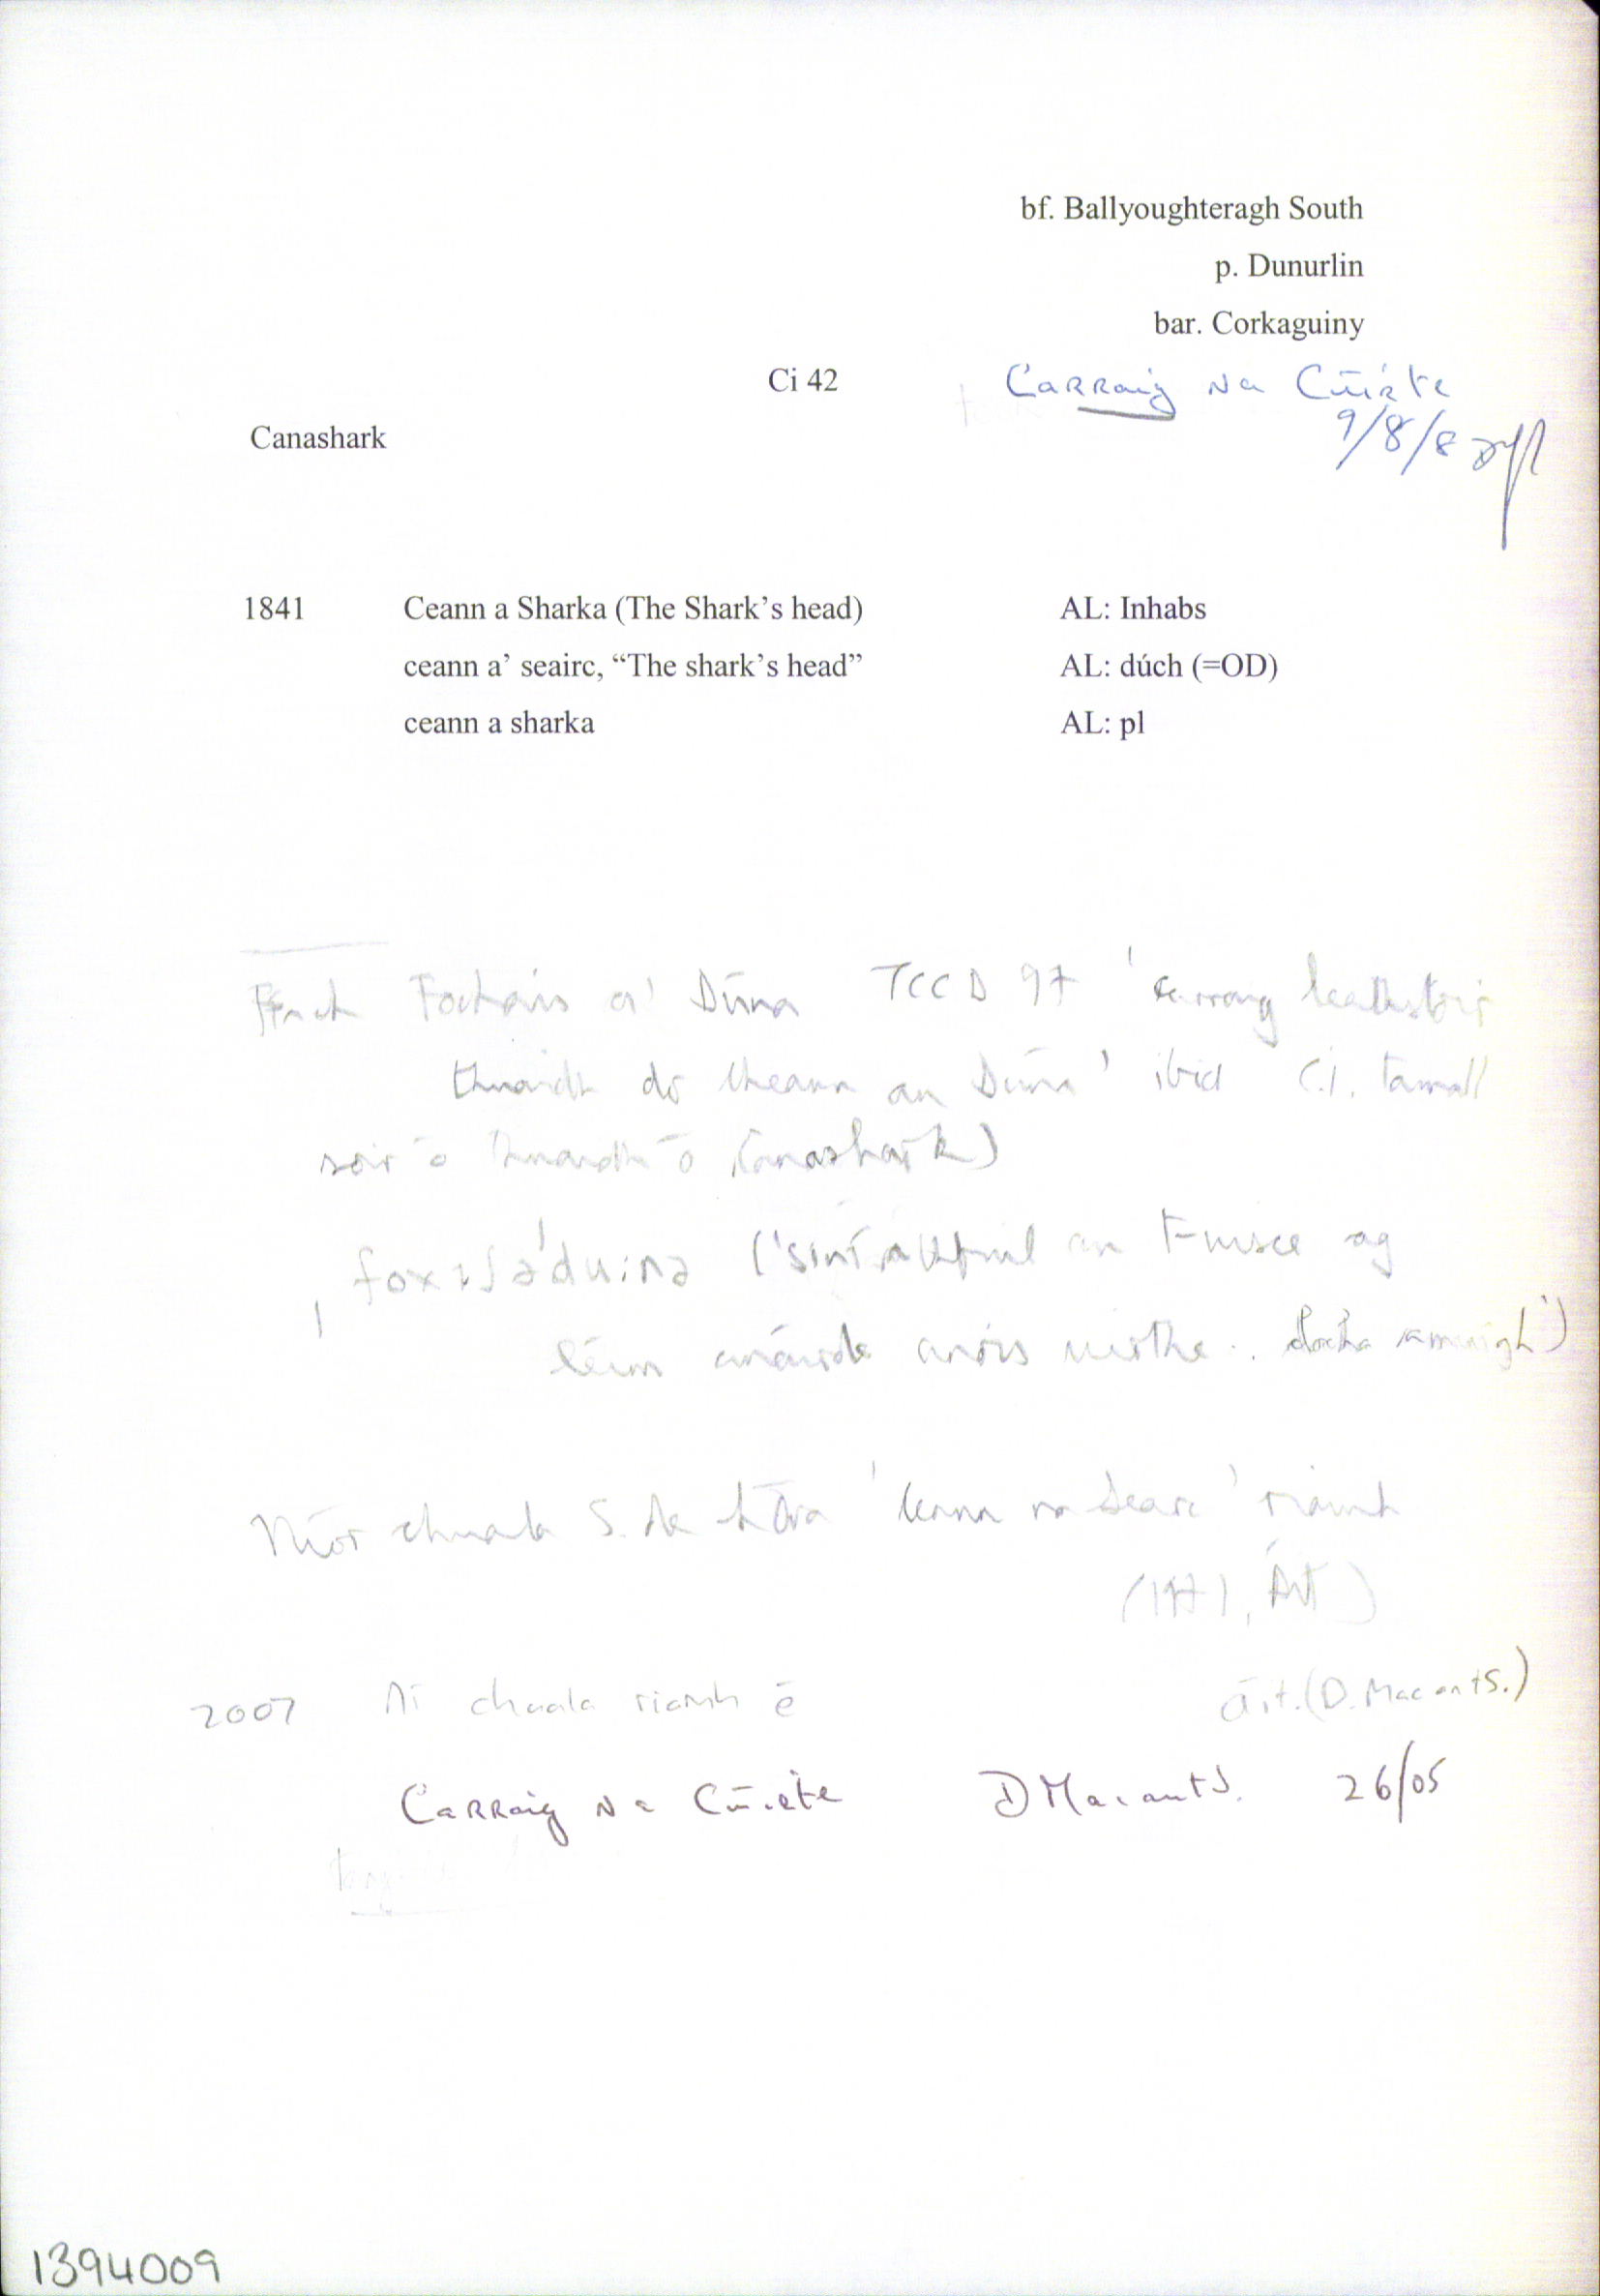 bf. Ballyoughteragh South
p. Dunurlin
bar. Corkaguiny
Ci 42 Carraig na Cúirte
9/8/8
Canashark
1841 Ceann a Sharka (The Shark’s head) AL: Inhabs
ceann a’ seairc, “The shark’s head” AL: dúch (=OD)
ceann a sharka AL: pl
Féach Fochais a' Dúna TCCD 97 'carraig leathstoir
thuaidh do Cheann an Dúna' ibid (.i. tamall
soir ó thuaidh ó Canashark)
an t-uisce ag
léim anáirde
Níor chuala S. de hÓra 'Ceann na Searc' riamh
(1971, Áit)
2007 Ní chuala riamh é áit. (D. Mac an tS.)
Carraig na Cúirte D Mac an tS. 26/05
1394009